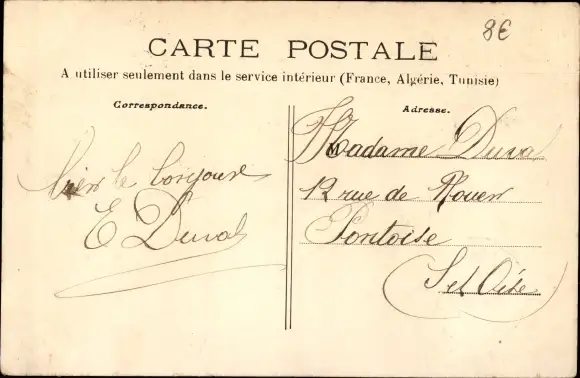 8€
CARTE POSTALE
A utiliser seulement dans le service intérieur (France, Algérie, Tunisie)
Correspondance.
Adresse.
bien le bonjour
E Duval
Madame Duval
12 rue de Rouen
Pontoise
S et Oise